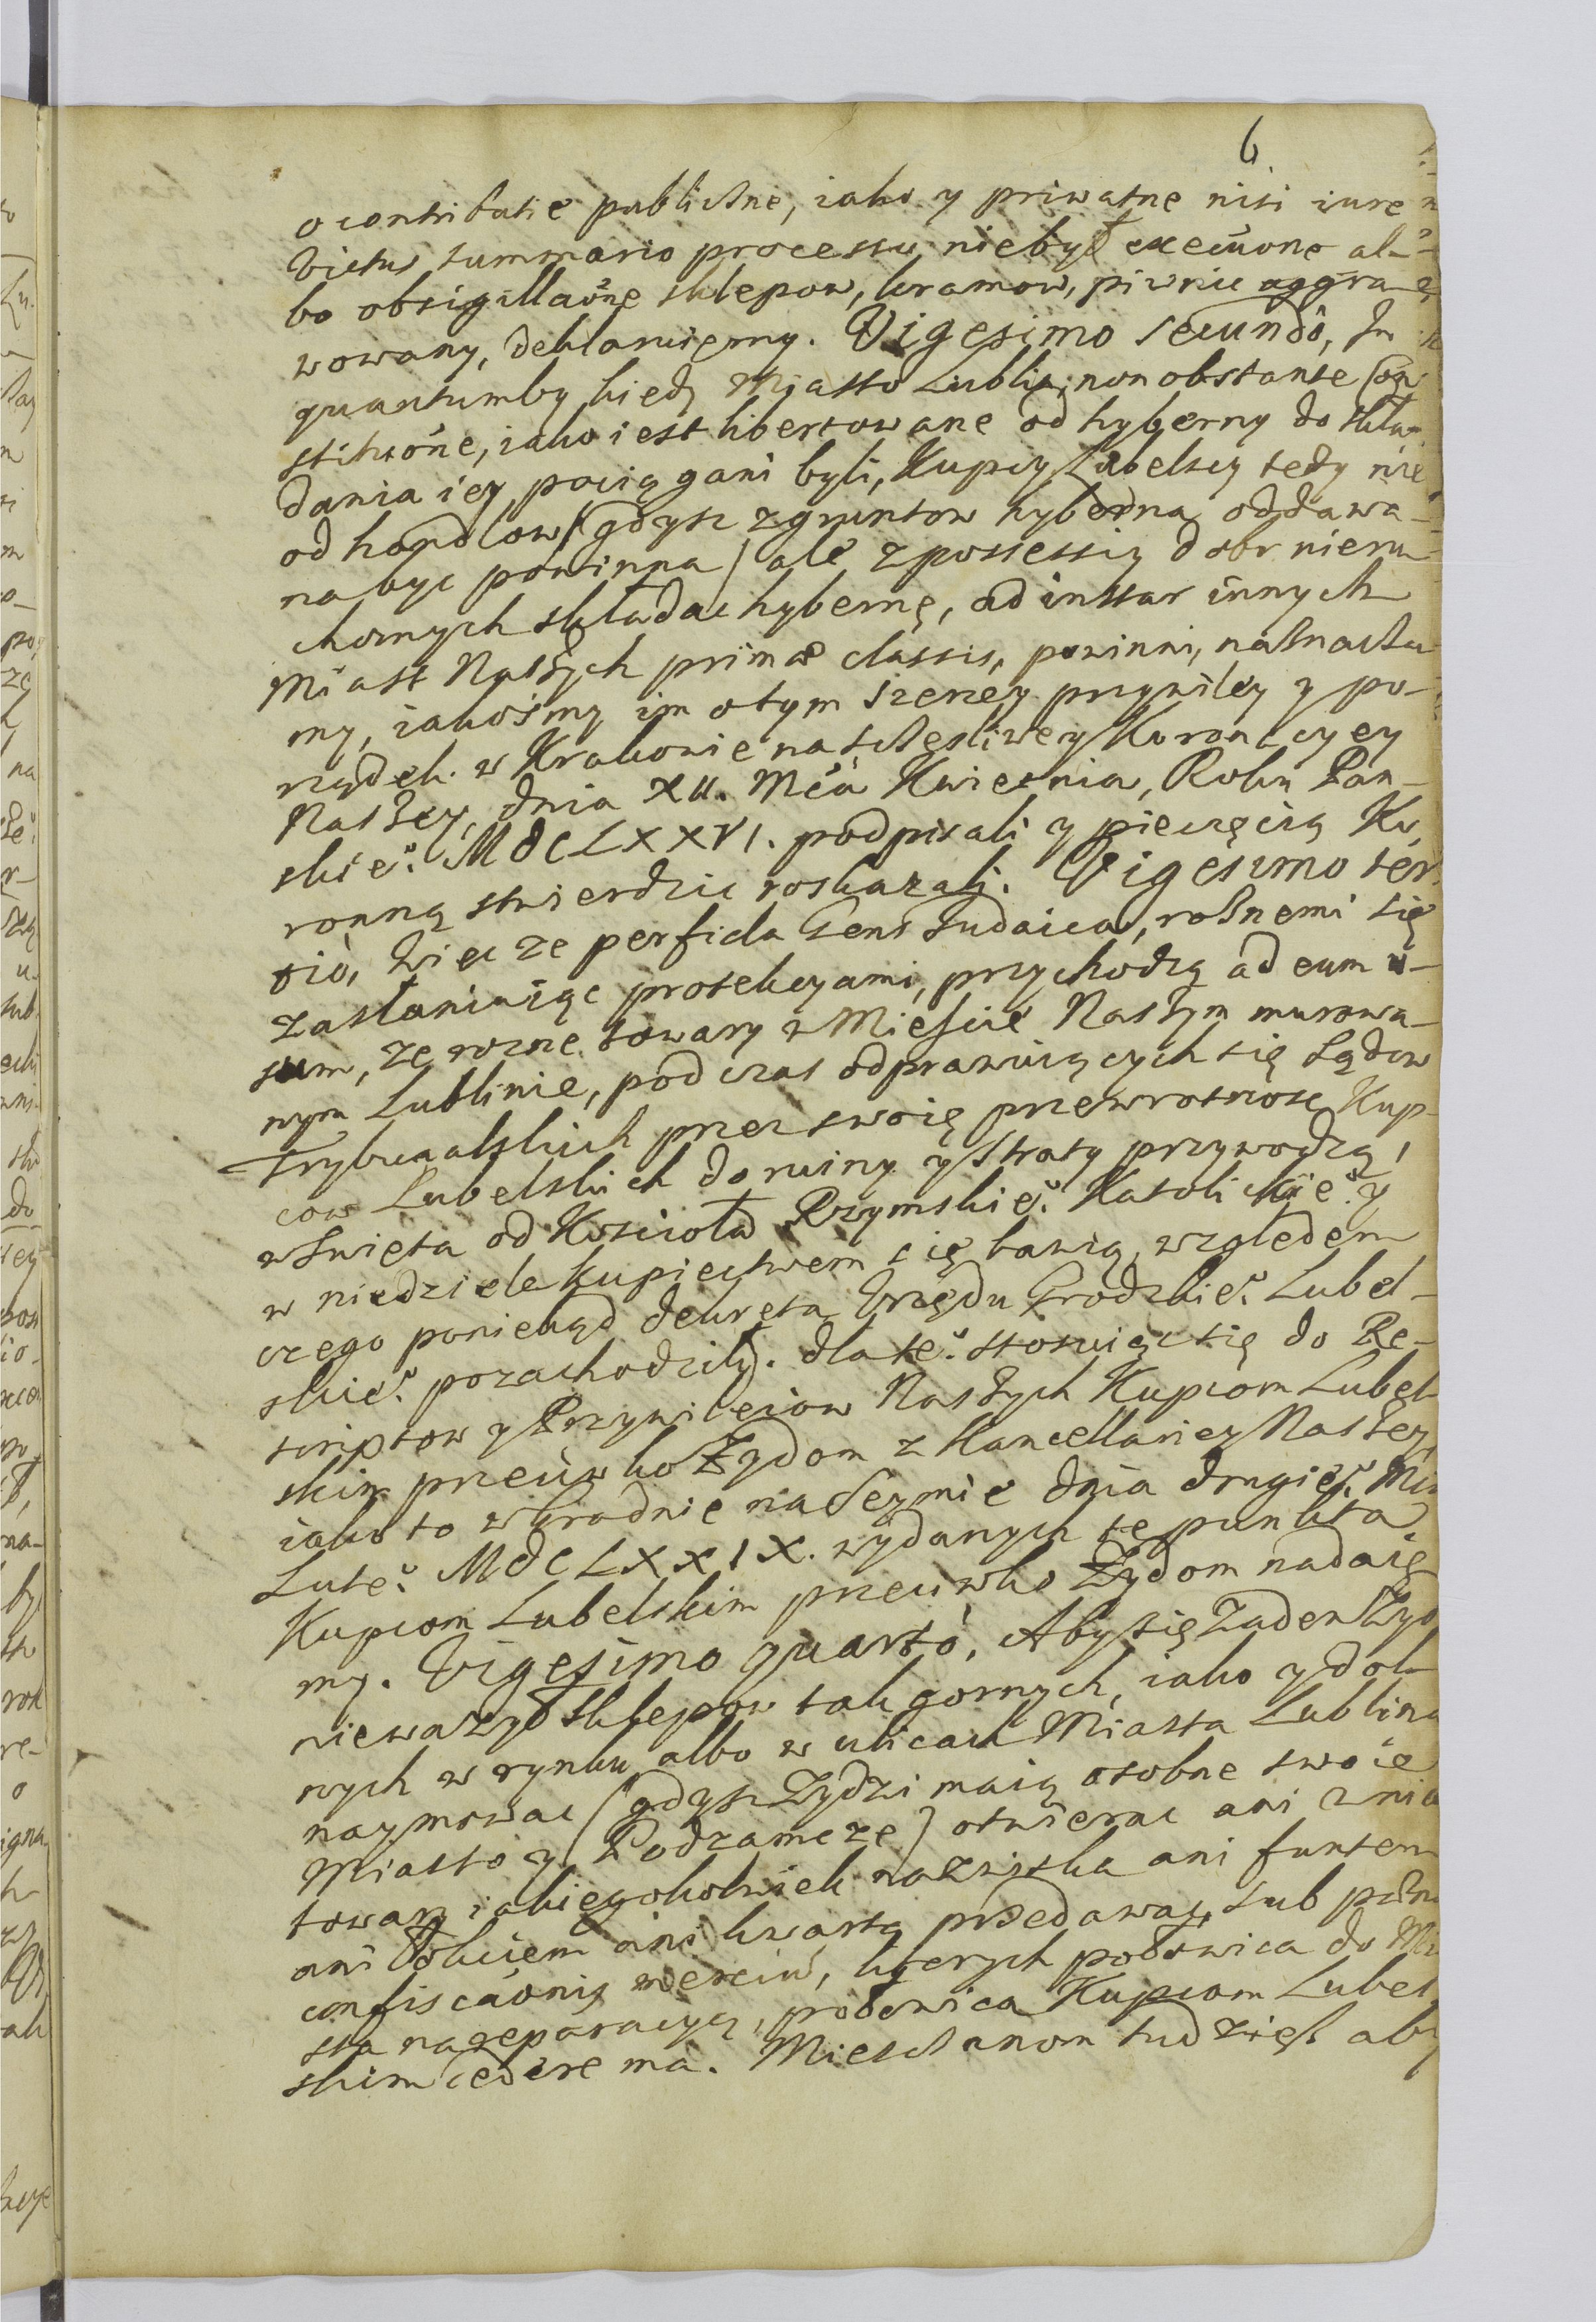 6
o contributie publiczne, iako y priwatne nisi iure
victus summario processu niebył execuione al-
bo obsigillaōne sklepow, kramow, piwnic aggra-
wowany, deklaruiemy. Vigesimo secundò, In
quantumby kiedy Miasto Lublin, non obstante Con
stitutōne, iako iest libertowane od hyberny do skła
dania iey pociągani byli, Kupcy Lubelscy tedy nie
od handlow (gdysz zgruntow hyberna oddawa-
na byc powinna) ale z possessiy dobr nieru-
chomych składac hybernę, ad instar innych
Miast Naszych primæ classis, powinni, naznaczu
my, iakosmy im otym szerzey przywiley y po-
rządek w Krakowie na szczęsliwey Koronacyey
Naszey, dnia XII. Mca Kwietnia, Roku Pan-
skie° MDCLXXVI. podpisali y pieczęcią Ko
ronną stwierdzic roskazali. Vigesimo ter
tiò, Wiec ze perfida Gens Judaica, roznemi się
zasłaniaiąc protekcyami, przychodzą ad eum u-
sum, ze rozne towary w Mieście Naszym murowa-
nym Lublinie, podczas odprawuiących się Sądow
Trybunalskich przez swoię przewrotnosc Kup-
cow Lubelskich do ruiny y straty przywodzą,
w Swięta od Koscioła Rzymskie° Katolickie° y
w niedziele kupiectwem się bawią, względem
czego poniekąd dekreta Vrzędu Grodzkie° Lubel-
skie° pozachodziły. dla te° stosuiąc się do Re-
scriptow y Przywileiow Naszych Kupcom Lubel
skim przeciwko Zydom z Kancellariey Naszey
iako to w Grodnie na Seymie dnia drugie° Mca
Lute° MDCLXXIX. wydanych te punkta
Kupcom Lubelskim przeciwko Zydom nadaie
my. Vigesimo quartò, Aby się zaden Zyd
niewazył sklepow tak gornych, iako y dol-
nych w rynku albo w ulicach Miasta Lublina
naymowac (gdysz Zydzi maią osobne swoie
Miasto y Podzamcze) otwierac ani znich
towary iakiegokolwiek nazwiska ani funtem
ani łokciem ani kwartą przedawac, sub pæna
confiscaōnis mercium, ktorych połowica do Mia
sta na reparacyą, połowica Kupcom Lubel
skim cedere ma. Mieszczanom tudziesz aby